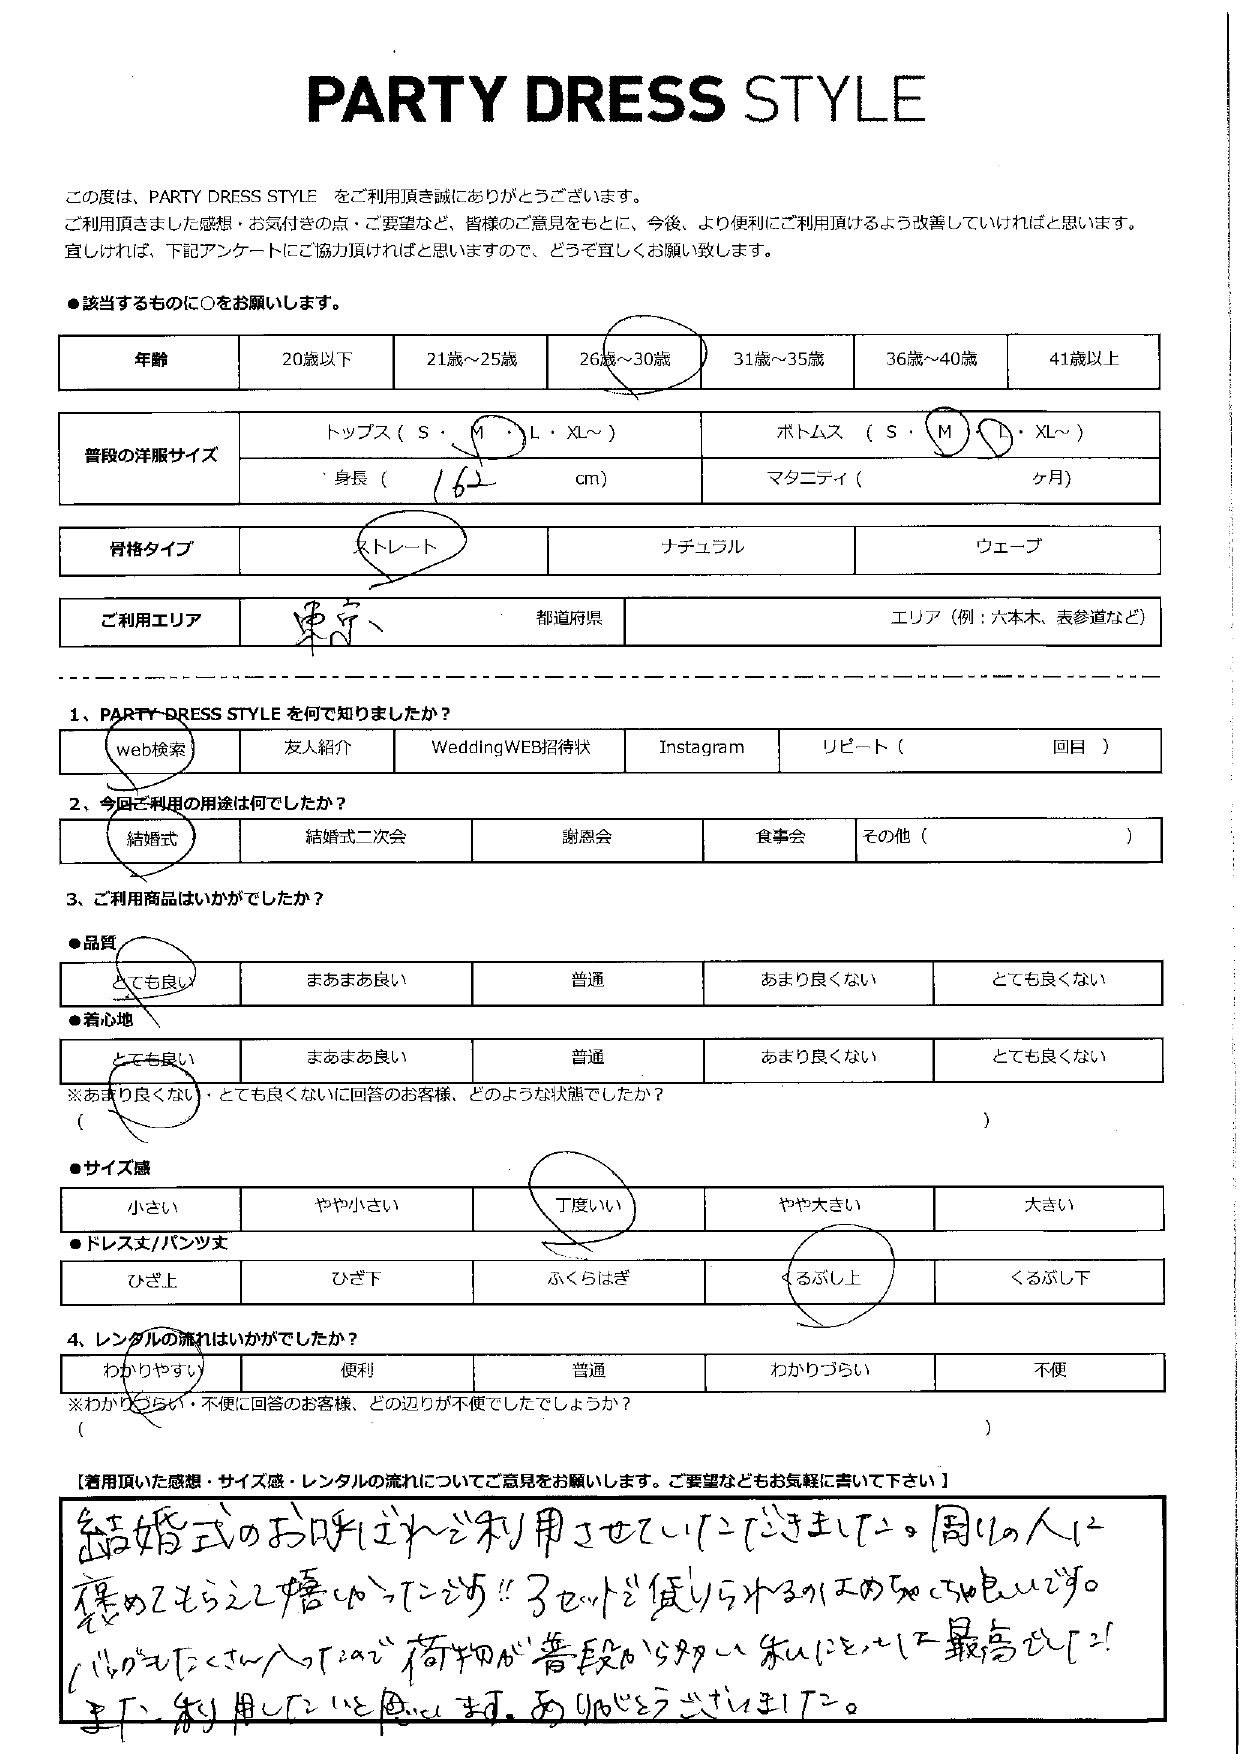 PARTY DRESS STYLE
この度は、PARTY DRESS STYLE をご利用頂き誠にありがとうございます。
ご利用頂きました感想・お気付きの点・ご要望など、皆様のご意見をもとに、今後、より便利にご利用頂けるよう改善していければと思います。
宜しければ、下記アンケートにご協力頂ければと思いますので、どうぞ宜しくお願い致します。
●該当するものに○をお願いします。
年齢 20歳以下 21歳～25歳 26歳～30歳 31歳～35歳 36歳～40歳 41歳以上
普段の洋服サイズ トップス ( S ・ M ・ L ・ XL～ ) ボトムス ( S ・ M ・ L ・ XL～ )
身長 ( 162 cm) マタニティ ( ヶ月)
骨格タイプ ストレート ナチュラル ウェーブ
ご利用エリア 東京 都道府県 エリア（例：六本木、表参道など）
1、PARTY DRESS STYLE を何で知りましたか？
web検索 友人紹介 WeddingWEB招待状 Instagram リピート ( 回目 )
2、今回ご利用の用途は何でしたか？
結婚式 結婚式二次会 謝恩会 食事会 その他 ( )
3、ご利用商品はいかがでしたか？
●品質
とても良い まあまあ良い 普通 あまり良くない とても良くない
●着心地
とても良い まあまあ良い 普通 あまり良くない とても良くない
※あまり良くない・とても良くないに回答のお客様、どのような状態でしたか？
( )
●サイズ感
小さい やや小さい 丁度いい やや大きい 大きい
●ドレス丈/パンツ丈
ひざ上 ひざ下 ふくらはぎ くるぶし上 くるぶし下
4、レンタルの流れはいかがでしたか？
わかりやすい 便利 普通 わかりづらい 不便
※わかりづらい・不便に回答のお客様、どの辺りが不便でしたでしょうか？
( )
【着用頂いた感想・サイズ感・レンタルの流れについてご意見をお願いします。ご要望などもお気軽に書いて下さい】
結婚式のお呼ばれで利用させていただきました。周りの人に
褒めてもらえて嬉しかったです!! 3セットで借りられるのはめちゃくちゃ良いです。
バッグもたくさん入ったので荷物が普段から多い私にとっては最高でした!
また利用したいと思います。ありがとうございました。